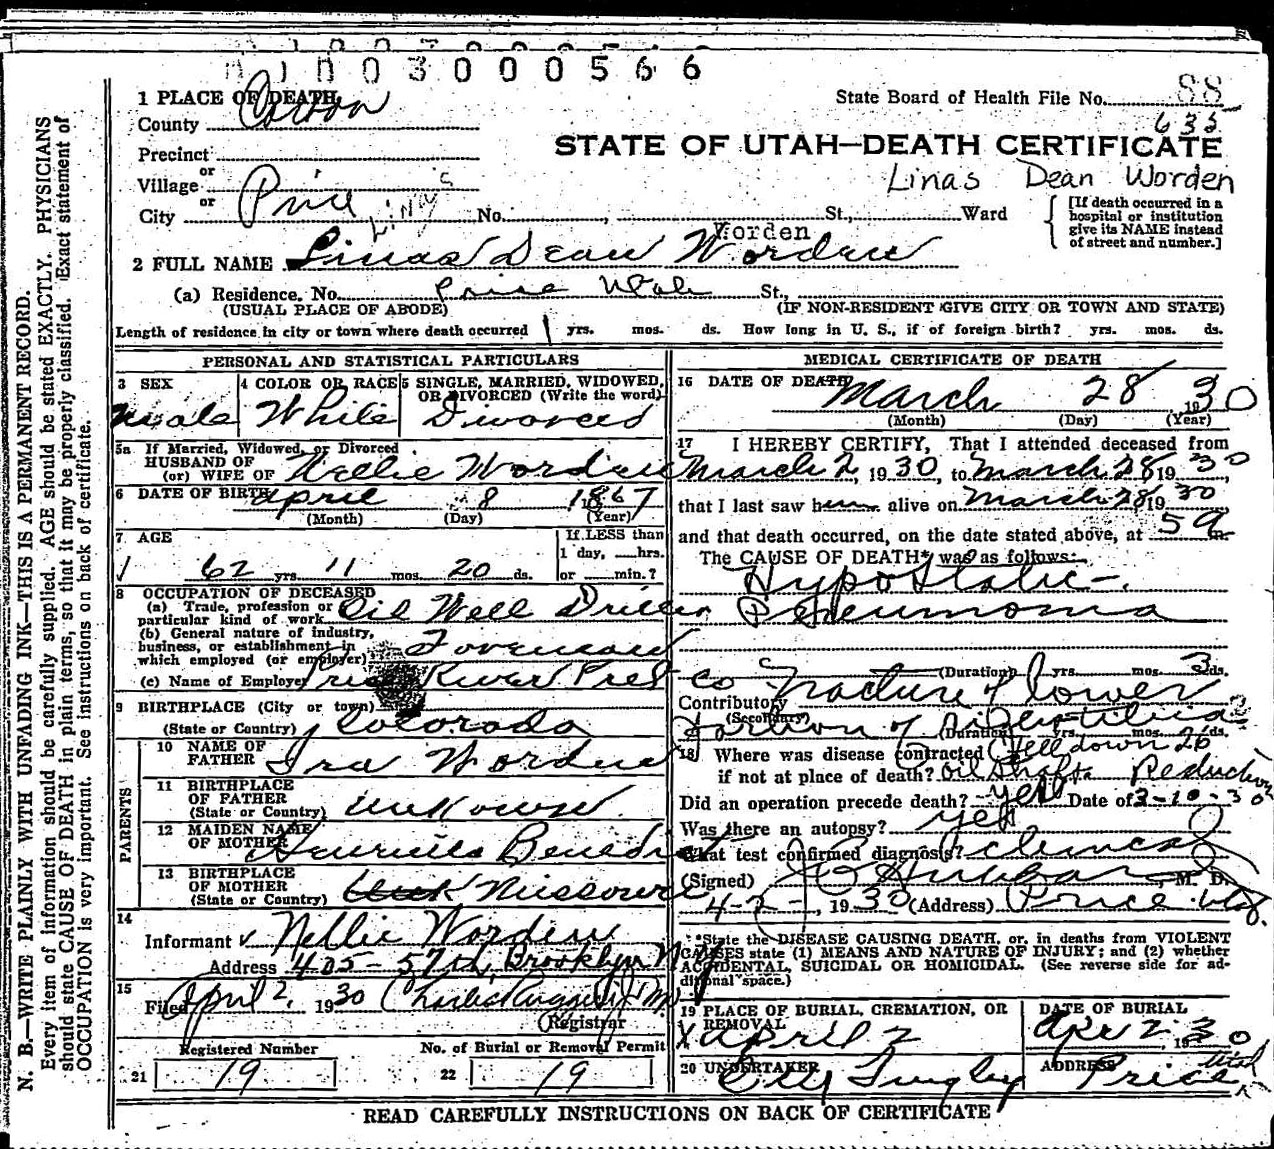 1003000566
1 PLACE OF DEATH
State Board of Health File No. 88
635
County Carbon
Precinct
STATE OF UTAH—DEATH CERTIFICATE
or
Village
Linas Dean Worden
or
City Price No. , St., Ward
[If death occurred in a
hospital or institution
give its NAME instead
of street and number.]
Worden
2 FULL NAME Linas Dean Worden
(a) Residence. No. Price Utah St.,
(USUAL PLACE OF ABODE) (IF NON-RESIDENT GIVE CITY OR TOWN AND STATE)
Length of residence in city or town where death occurred 1 yrs. mos. ds. How long in U. S., if of foreign birth? yrs. mos. ds.
PERSONAL AND STATISTICAL PARTICULARS
3 SEX
Male
4 COLOR OR RACE
White
5 SINGLE, MARRIED, WIDOWED,
OR DIVORCED (Write the word)
Divorced
5a If Married, Widowed, or Divorced
HUSBAND OF
(or) WIFE OF Nellie Worden
6 DATE OF BIRTH April 8 1867
(Month) (Day) (Year)
7 AGE
62 yrs. 11 mos. 20 ds.
If LESS than
1 day, hrs.
or min.?
8 OCCUPATION OF DECEASED
(a) Trade, profession or
particular kind of work Oil Well Driller
(b) General nature of industry,
business, or establishment in
which employed (or employer) Foreman
(c) Name of Employer Price River Pret Co
9 BIRTHPLACE (City or town)
(State or Country) Colorado
PARENTS
10 NAME OF
FATHER Ira Worden
11 BIRTHPLACE
OF FATHER
(State or Country) unkown
12 MAIDEN NAME
OF MOTHER Henrietta Benedict
13 BIRTHPLACE
OF MOTHER
(State or Country) Missouri
14
Informant Nellie Worden
Address 405-57th, Brooklyn N.Y
15
Filed April 2, 1930
Registrar
Registered Number
21 19
No. of Burial or Removal Permit
22 19
MEDICAL CERTIFICATE OF DEATH
16 DATE OF DEATH March 28 1930
(Month) (Day) (Year)
17 I HEREBY CERTIFY, That I attended deceased from
March 2, 1930, to March 28 1930,
that I last saw him alive on March 28 1930
and that death occurred, on the date stated above, at 5 a m.
The CAUSE OF DEATH* was as follows:
Hypostatic
Pneumonia
(Duration) yrs. mos. 3 ds.
Contributory Fracture of lower
(Secondary)
Portion of
(Duration) yrs. mos. ds.
26
18 Where was disease contracted Fell down
if not at place of death? oil shaft. Reduction
Did an operation precede death? yes Date of 3-10-30
Was there an autopsy? yes
What test confirmed diagnosis? clinical
(Signed) J C Hubbard, M. D.
4-2-, 1930 (Address) Price Utah.
*State the DISEASE CAUSING DEATH, or, in deaths from VIOLENT
CAUSES state (1) MEANS AND NATURE OF INJURY; and (2) whether
ACCIDENTAL, SUICIDAL OR HOMICIDAL. (See reverse side for ad-
ditional space.)
19 PLACE OF BURIAL, CREMATION, OR
REMOVAL
X April 2
DATE OF BURIAL
Apr 2 1930
20 UNDERTAKER
ADDRESS
Price Utah
READ CAREFULLY INSTRUCTIONS ON BACK OF CERTIFICATE
N. B.—WRITE PLAINLY WITH UNFADING INK—THIS IS A PERMANENT RECORD.
Every item of information should be carefully supplied. AGE should be stated EXACTLY. PHYSICIANS
should state CAUSE OF DEATH in plain terms, so that it may be properly classified. Exact statement of
OCCUPATION is very important. See instructions on back of certificate.